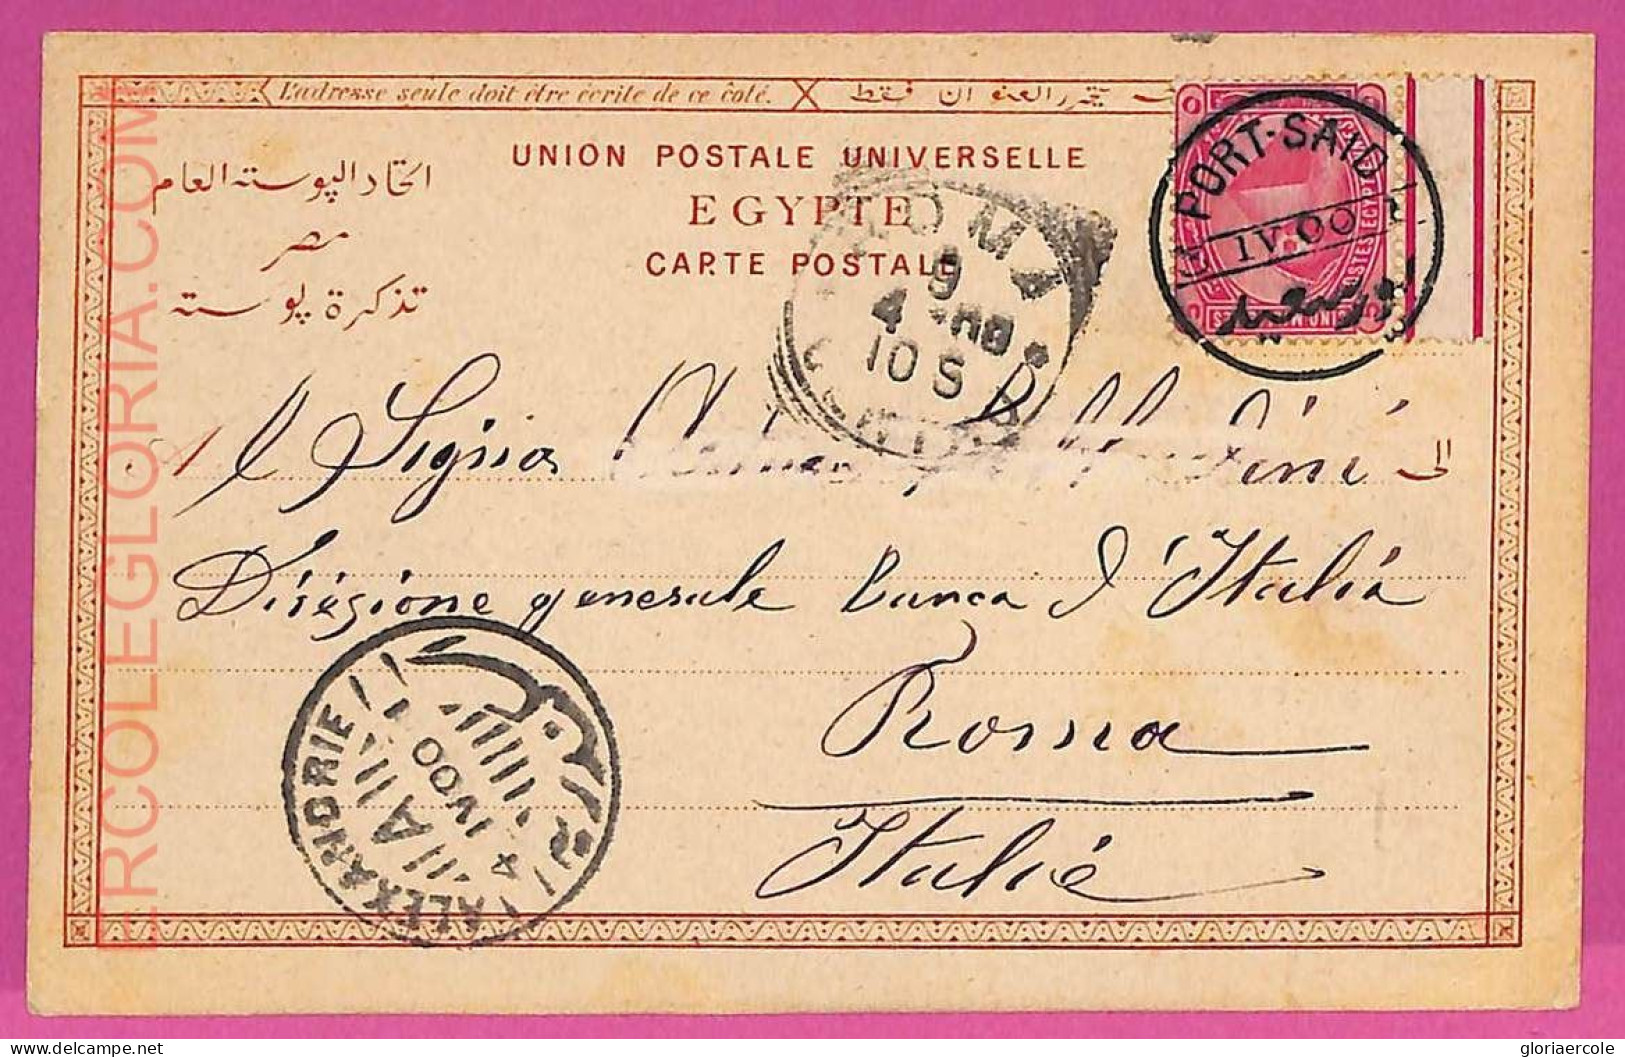 L'adresse seule doit être écrite de ce côté.
UNION POSTALE UNIVERSELLE
EGYPTE
CARTE POSTALE
اتحاد البوسته العام
مصر
تذكرة بوسته
PORT-SAID
IV.00
بورسعيد
ROMA
9
4
10 S
Al Signor
الى
Direzione generale Banca d'Italia
Roma
Italie
ALEXANDRIE
A
4 IV 00
ERCOLEGLORIA.COM
delcampe.net
gloriaercole